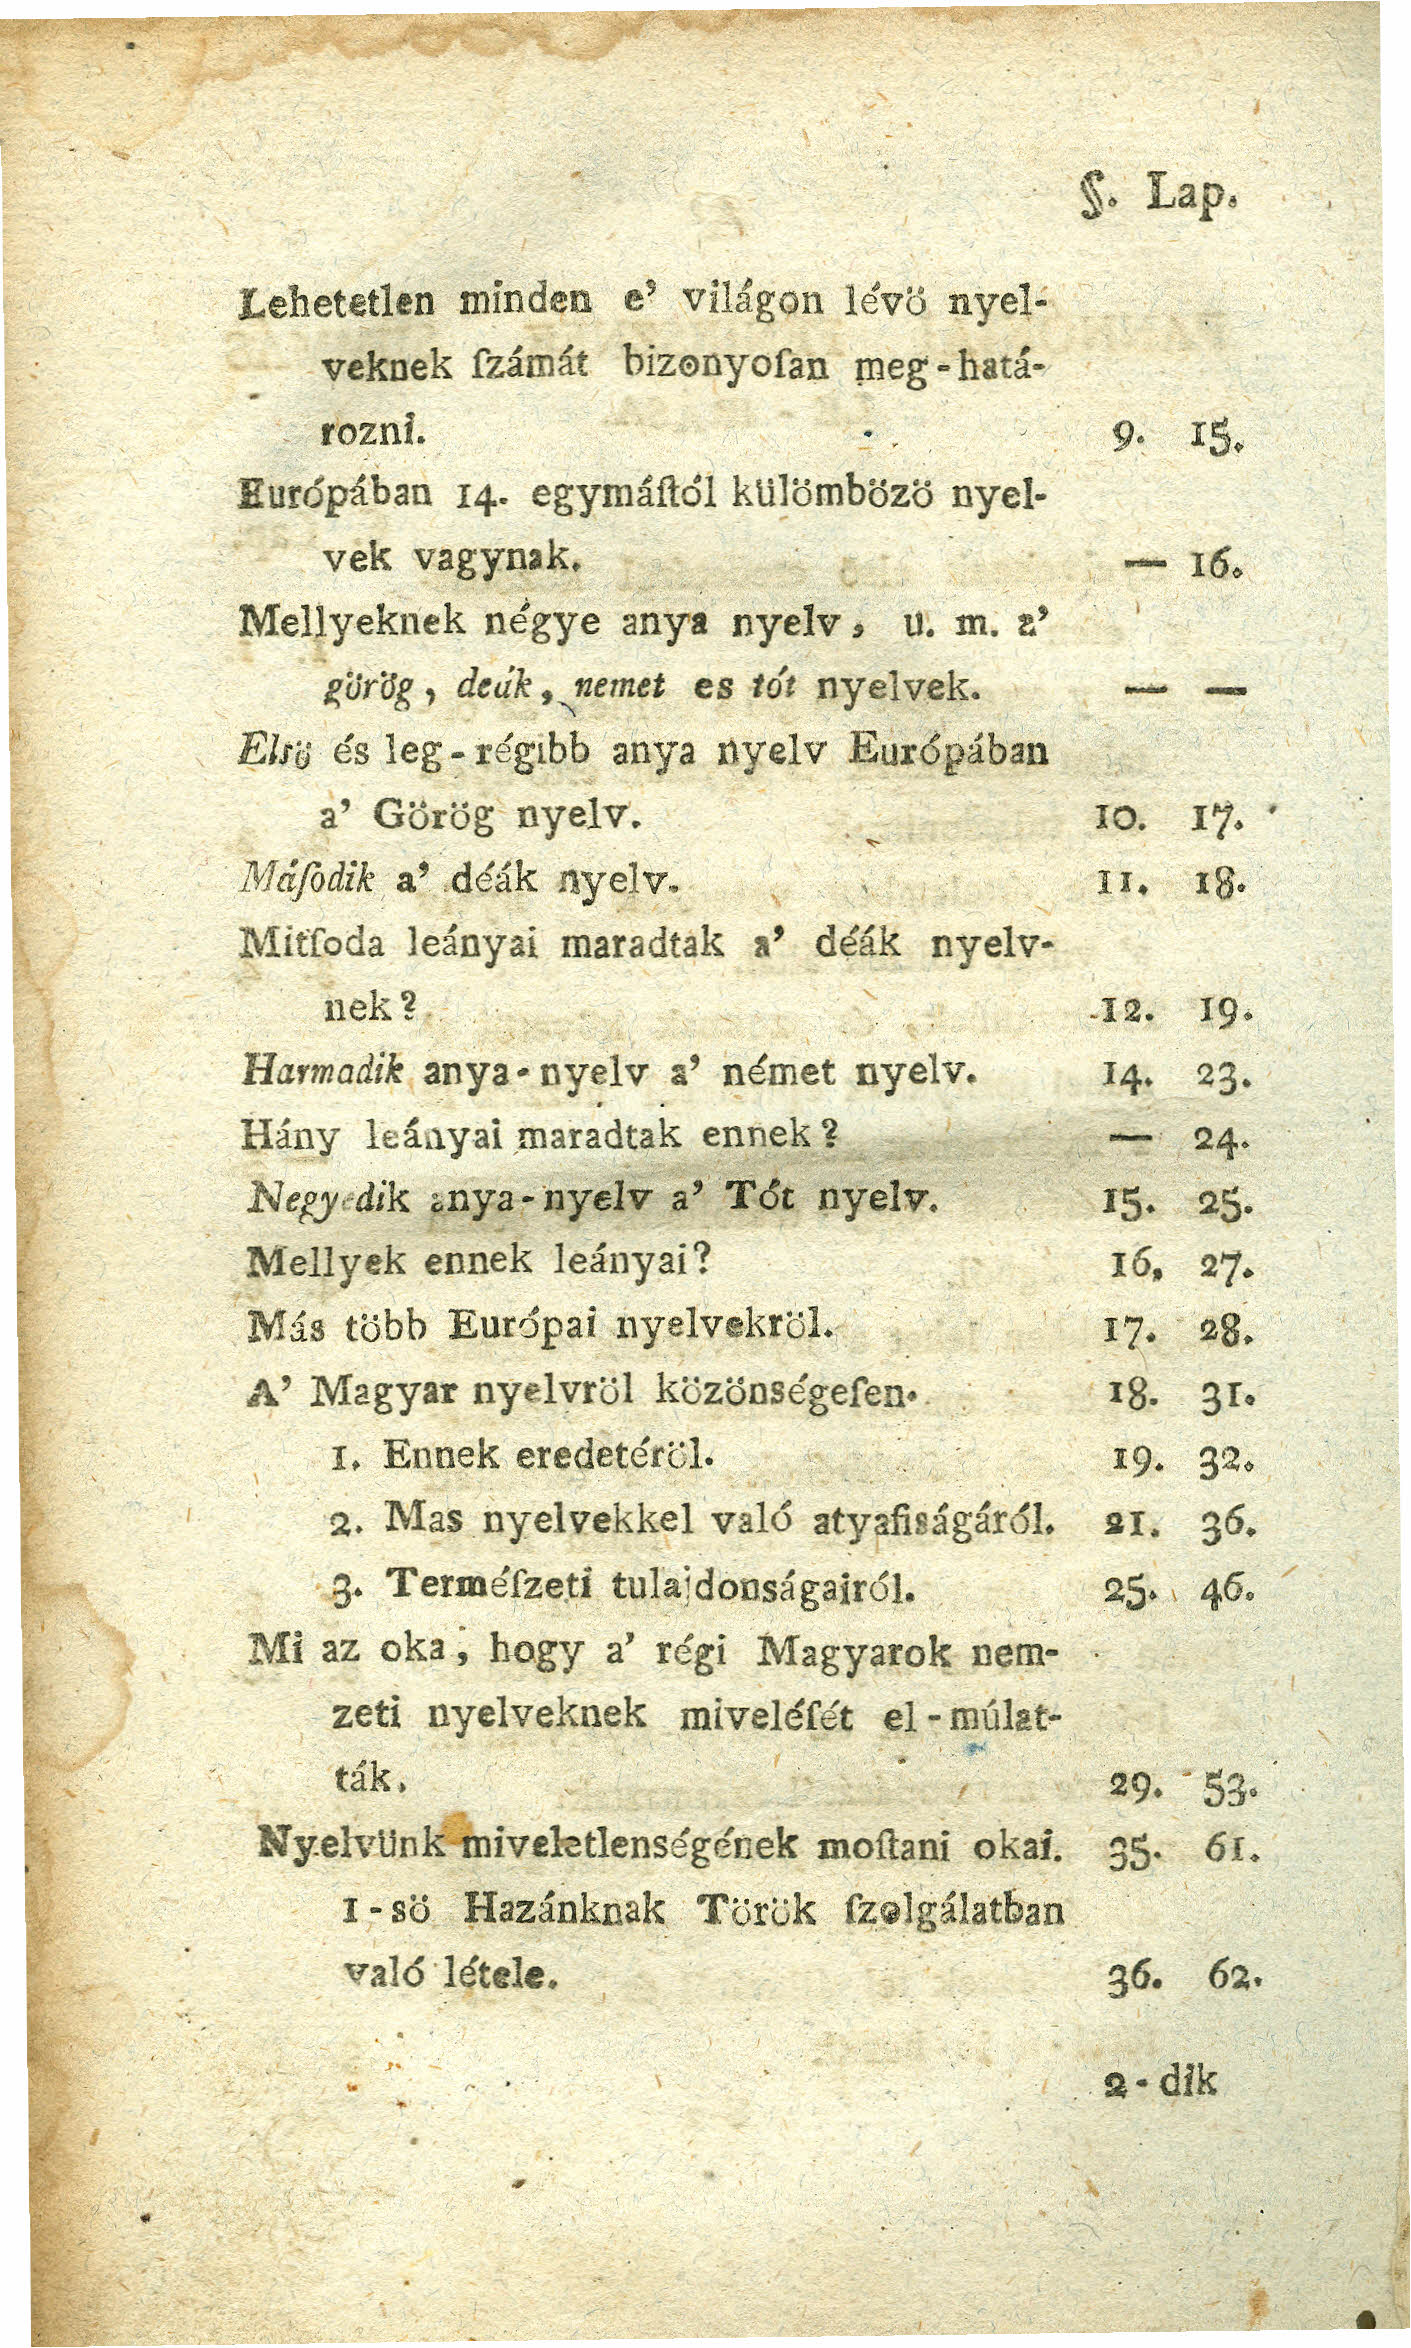 §. Lap.
Lehetetlen minden e' világon lévö nyel-
veknek ſzámát bizonyoſan meg-hatá-
rozni. 9. 15.
Európában 14. egymáſtól külömbözö nyel-
vek vagynak. — 16.
Mellyeknek négye anya nyelv, u. m. a'
görög, deák, nemet es tót nyelvek. — —
Elsö és leg-régibb anya nyelv Európában
a' Görög nyelv. 10. 17.
Máſodik a' déák nyelv. 11. 18.
Mitſoda leányai maradtak a' déák nyelv-
nek? 12. 19.
Harmadik anya-nyelv a' német nyelv. 14. 23.
Hány leányai maradtak ennek? — 24.
Negyedik anya-nyelv a' Tót nyelv. 15. 25.
Mellyek ennek leányai? 16, 27.
Más több Európai nyelvekröl. 17. 28.
A' Magyar nyelvröl közönségeſen. 18. 31.
1. Ennek eredetéröl. 19. 32.
2. Mas nyelvekkel való atyafiságáról. 21. 36.
3. Terméſzeti tulajdonságairól. 25. 46.
Mi az oka, hogy a' régi Magyarok nem-
zeti nyelveknek miveléſét el-múlat-
ták. 29. 53.
Nyelvünk miveletlenségének moſtani okai. 35. 61.
1-sö Hazánknak Török ſzolgálatban
való létele. 36. 62.
2-dik